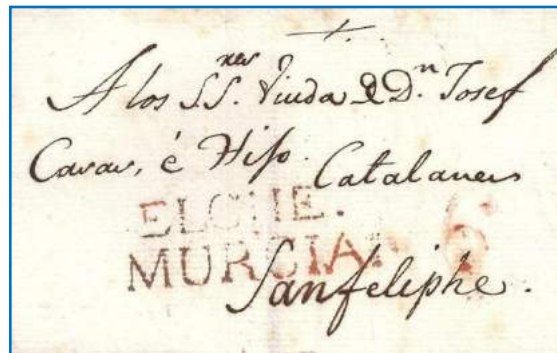 A los S.S.res Viuda de Dn. Josef
Casas, é Hijo. Catalanes
ELCHE. 6
MURCIA.
Sanfeliphe.